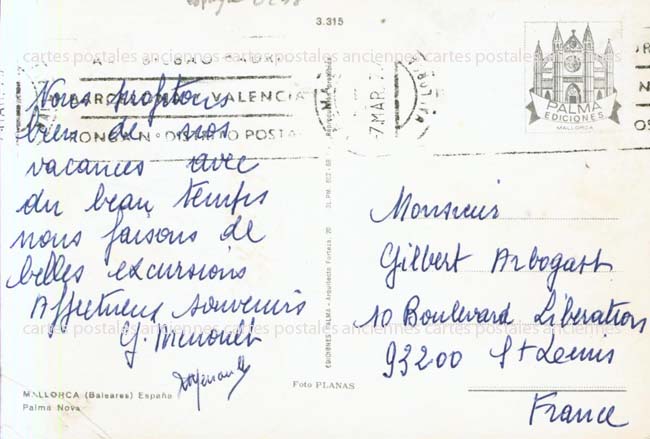 3.315
cartes postales anciennes cartes postales anciennes cartes postales anciennes
BARCELONA VALENCIA
PONGA Nº DISTRITO POSTAL
7 MAR. 7
PALMA
EDICIONES
MALLORCA
Nous profitons
bien de nos
vacances avec
du beau temps
nous faisons de
belles excursions
Affectueux souvenirs
G.
cartes postales anciennes cartes postales anciennes cartes postales anciennes
MALLORCA (Baleares) España
Palma Nova
EDICIONES PALMA - Arquitecto Forteza, 20
Foto PLANAS
Monsieur
Gilbert Arbogast
10 Boulevard Libération
93200 St Denis
France